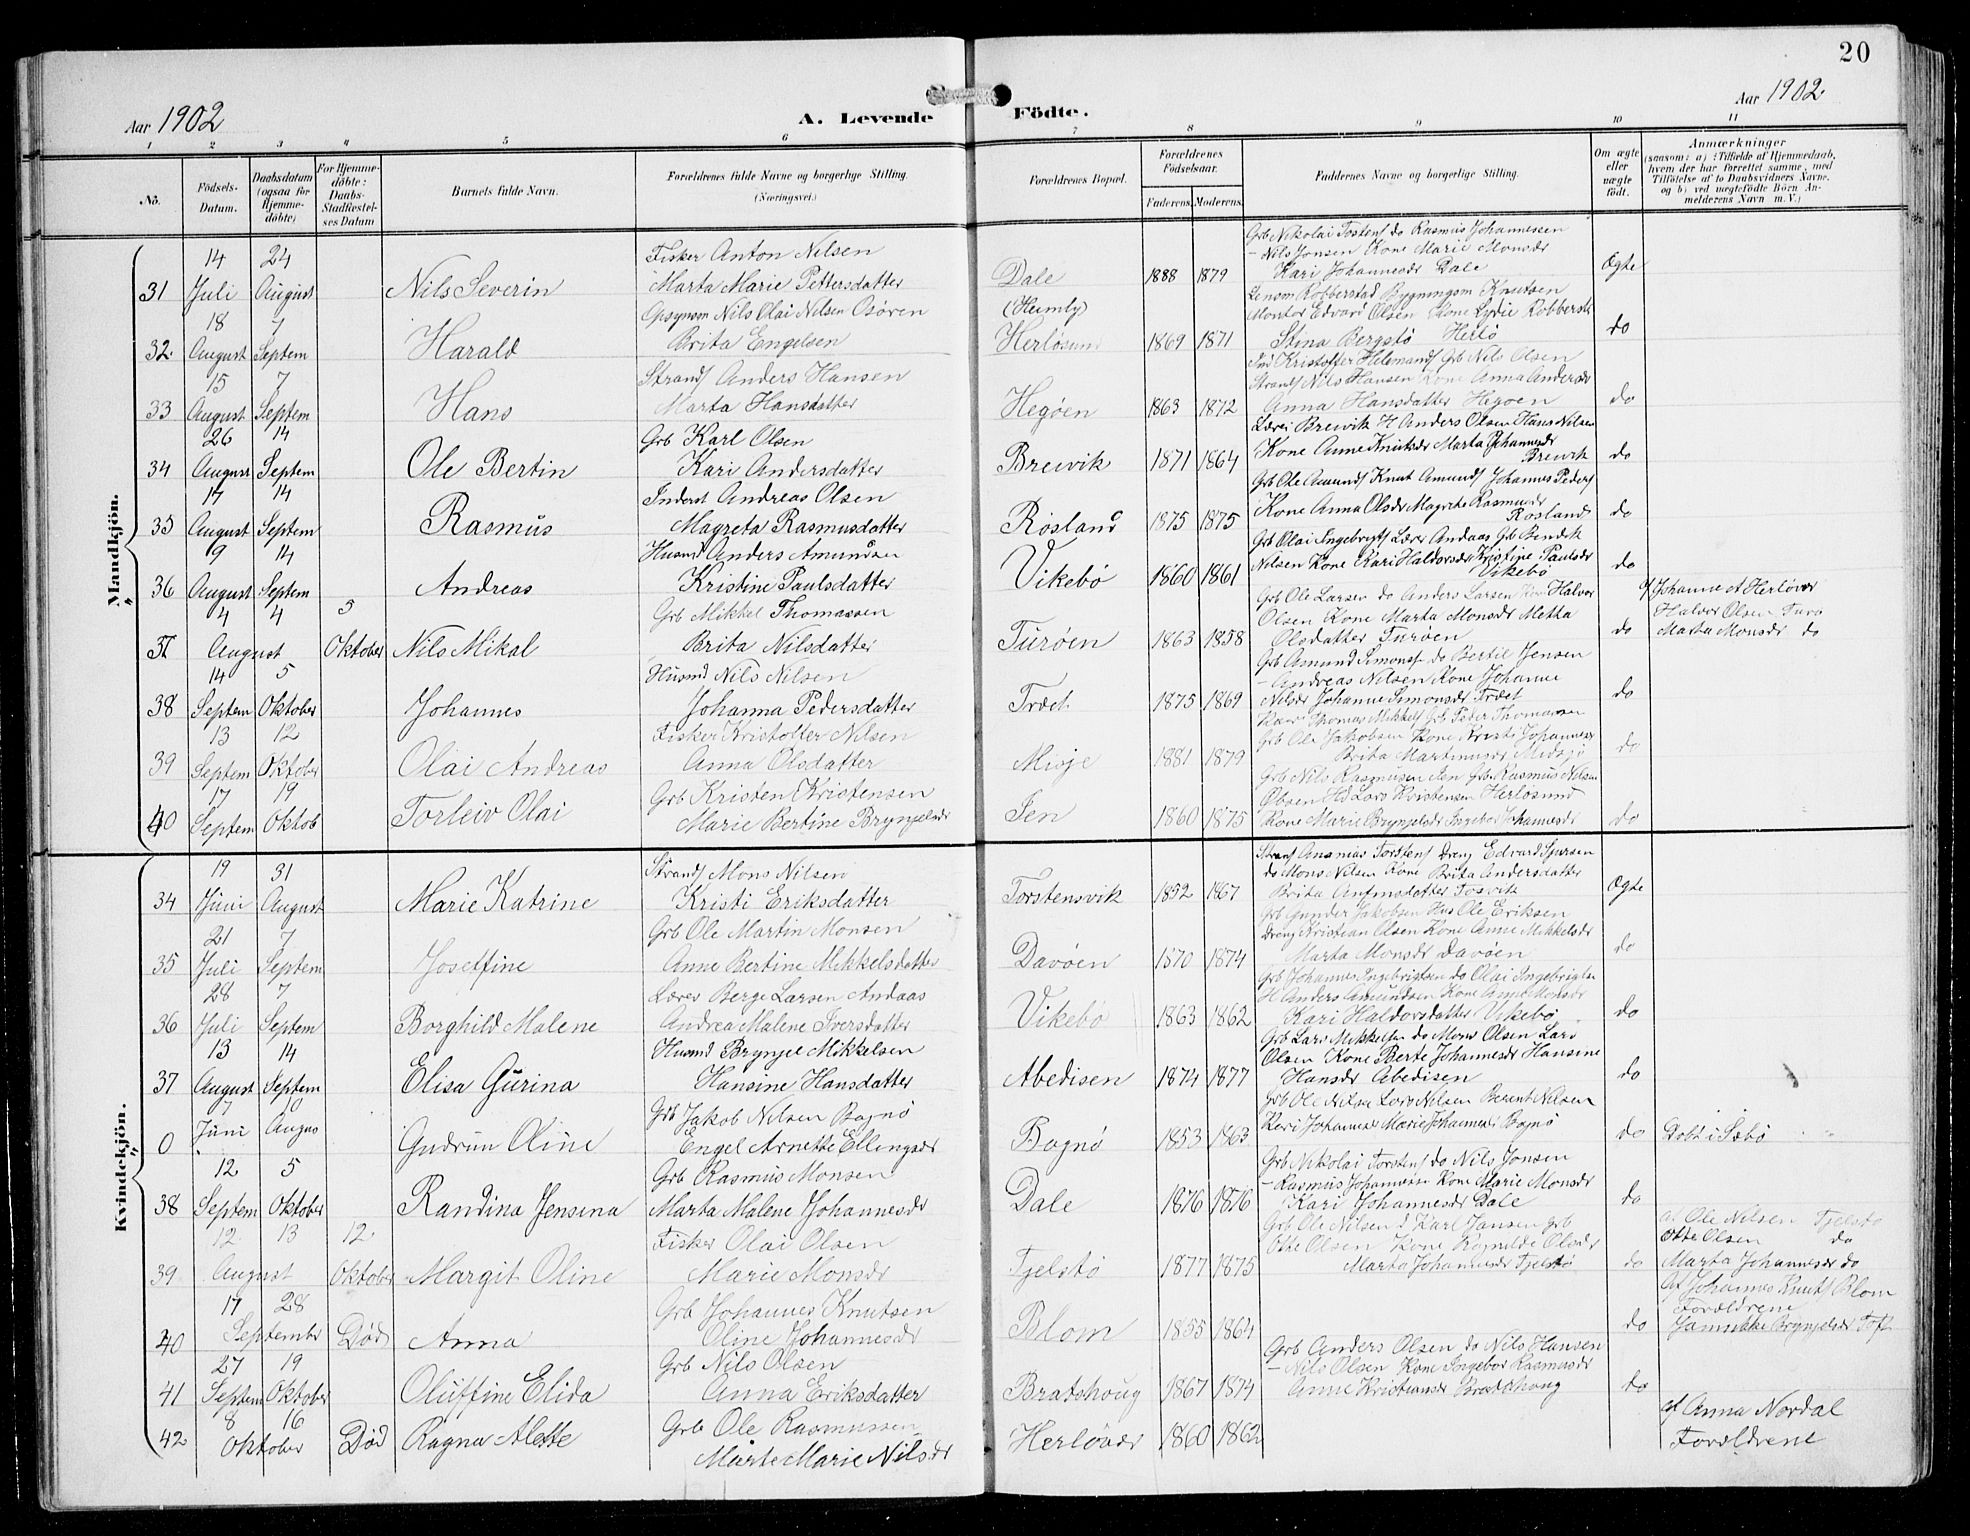 20
Aar 1902
A. Levende Födte.
Aar 1902.
1 2 3 4 5 6 7 8 9 10 11
No.
Födsels-Datum.
Daabsdatum (ogsaa for Hjemme-döbte)
For Hjemme-döbte: Daabs-Stadfæstel-ses Datum
Barnets fulde Navn.
Forældrenes fulde Navne og borgerlige Stilling.
(Næringsvei.)
Forældrenes Bopæl.
Forældrenes Födselsaar.
Faderens. Moderens.
Faddernes Navne og borgerlige Stilling.
Om ægte eller uægte født.
Anmærkninger
(saasom: a) i Tilfælde af Hjemmedaab, hvem der har forrettet samme, med Tilföielse af to Daabsvidners Navne, og b) ved uægtefödte Börn An-melderens Navn m.V.)
„Mandkjön.
31 14 Juli 24 August Nils Severin
Fisker Anton Nilsen
Marta Marie Pettersdatter
Dale 1888 1879
Grb Nikolai Tostens do Rasmus Johannessen
- Nils Jonsen Kone Marie Monsdr
Kari Johannesdr Dale
Ægte
32. 18 August 7 Septem Harald
Opsynsm Nils Olai Nilsen Osören
Brita Engelsen
(Heimly)
Herlösund 1869 1871
Lensm Robberstad Bygningsm Knutsen
Montör Edvard Olsen Kone Lydie Robberst
Stina Bergstö Herlö
do
33 15 August 7 Septem Hans
Strands Anders Hansen
Marta Hansdatter
Hegöen 1863 1872
Ind Kristoffer Helemands Grb Nils Olsen
Strands Nils Hansen Kone Anna Andersdr
Anna Hansdatter Hegöen
do
34 26 August 14 Septem Ole Bertin
Grb Karl Olsen
Kari Andersdatter
Breivik 1871 1864
Lærer Breivik H Anders Olsen Hans Nilsen
Kone Anne Knutsdr Marta Johannesdr
Breivik
do
35 17 August 14 Septem Rasmus
Inderst Andreas Olsen
Magreta Rasmusdatter
Rosland 1875 1875
Grb Ole Amunds Knut Amunds Johannes Peders
Kone Anna Olsdr Magreta Rasmusdr
Rosland
do
36 9 August 14 Septem Andreas
Husmd Anders Amundsen
Kristine Paulsdatter
Vikebö 1860 1861
Grb Olai Ingebrigts Lærer Andaas Gb Bendik
Nilsen Kone Kari Haldorsdr Kristine Paulsdr
Vikebö
do
37 4 4 August 5 Oktober Nils Mikal
Grb Mikkel Thomassen
Brita Nilsdatter
Turöen 1863 1858
Grb Ole Larsen do Anders Larsen Halvor
Olsen Kone Marta Monsdr Metta
Olsdatter Turöen
do
af Johanne A Herlöver
Halvor Olsen Turö
Marta Monsdr do
38 14 Septem 5 Oktober Johannes
Husmd Nils Nilsen
Johanna Pedersdatter
Træt 1875 1869
Grb Amund Simons do Bertil Jensen
- Andreas Nilsen Kone Johanne
Nilsdr Johanne Simonsdr Træt
do
39 13 Septem 12 Oktober Olai Andreas
Fisker Kristoffer Nilsen
Anna Olsdatter
Misje 1881 1879
Thomas Mikkels Grb Peder Thomassen
Grb Ole Jakobsen Kone Kristi Johannesdr
Brita Martinusdr Misje
do
40 17 Septem 19 Oktob Torleiv Olai
Grb Kristen Kristensen
Marie Bertine Brynjelsdr
Jen 1860 1875
Grb Nils Rasmussen Jen Grb Rasmus Nilsen
Lars Kristensen Herlösund
Kone Marie Brynjelsdr Ingebor Johannesdr
do
Kvindekjön.
34 19 Juni 31 August Marie Katrine
Strands Mons Nilsen
Kristi Eriksdatter
Torstensvik 1852 1867
Strands Ananias Torstens Dreng Edvard Sjursen
do Mons Nilsen Kone Brita Andersdatter
Brita Anfinsdatter Tosvik
Ægte
35 21 Juli 7 Septem Joseffine
Grb Ole Martin Monsen
Anne Bertine Mikkelsdatter
Davöen 1870 1874
Grb Gunder Jakobsen Hus Ole Eriksen
Dreng Kristian Olsen Kone Anne Mikkelsdr
Marta Monsdr Davöen
do
36 28 Juli 7 Septem Borghild Malene
Lærer Berge Larsen Andaas
Andrea Malene Iversdatter
Vikebö 1863 1862
Grb Johannes Ingebrigtsen do Olai Ingebrigtsen
H Anders Amundsen Kone Anne Monsdr
Kari Haldorsdatter Vikebö
do
37 13 August 14 Septem Elisa Gurina
Husmd Brynjel Mikkelsen
Hansine Hansdatter
Abedisen 1874 1877
Grb Lars Mikkelsen do Mons Olsen Lars
Olsen Kone Berte Johannesdr Hansine
Hansdr Abedisen
do
0 7 Juni Augus Gudrun Oline
Grb Jakob Nilsen Bognö
Engel Arnette Ellingsdr
Bognö 1853 1863
Grb Ole Nilsen Lars Nilsen Berent Nilsen
Kari Johannesdr Marie Johannesdr Bognö
do
Döbt i Sæbö
38 12 Septem 5 Oktober Randina Jensina
Grb Rasmus Monsen
Marta Malene Johannesdr
Dale 1876 1876
Grb Nikolai Torstens do Nils Jonsen
- Rasmus Johannessen Kone Marie Monsdr
Kari Johannesdr Dale
do
39 12 13 August 12 Oktober Margit Oline
Fisker Olai Olsen
Marie Monsdr
Fjelstö 1877 1875
Grb Ole Nilsen d Karl Jansen grb
Otte Olsen Kone Ragnilde Olsdr
Marta Johannesdr Fjelstö
do
af Ole Nilsen Fjelstö
Otte Olsen do
Marta Johannesdr do
40 17 28 Septembr Död Anna
Grb Johannes Knutsen
Oline Johannesdr
Blom 1855 1864
do
Af Johannes Knuts Blom
Forældrene
Jannikke Brynjelsdr Toft
41 27 Septem 19 Oktober Oluffine Elida
Grb Nils Olsen
Anna Eriksdatter
Bratshoug 1867 1874
Grb Anders Olsen do Nils Hansen
- Nils Olsen Kone Ingebor Rasmusdr
Anne Kristiansdr Bratshoug
do
42 8 16 Oktober Död Ragna Alette
Grb Ole Rasmussen
Marte Marie Nilsdr
Herlövær 1860 1862
af Anna Nordal
Forældrene